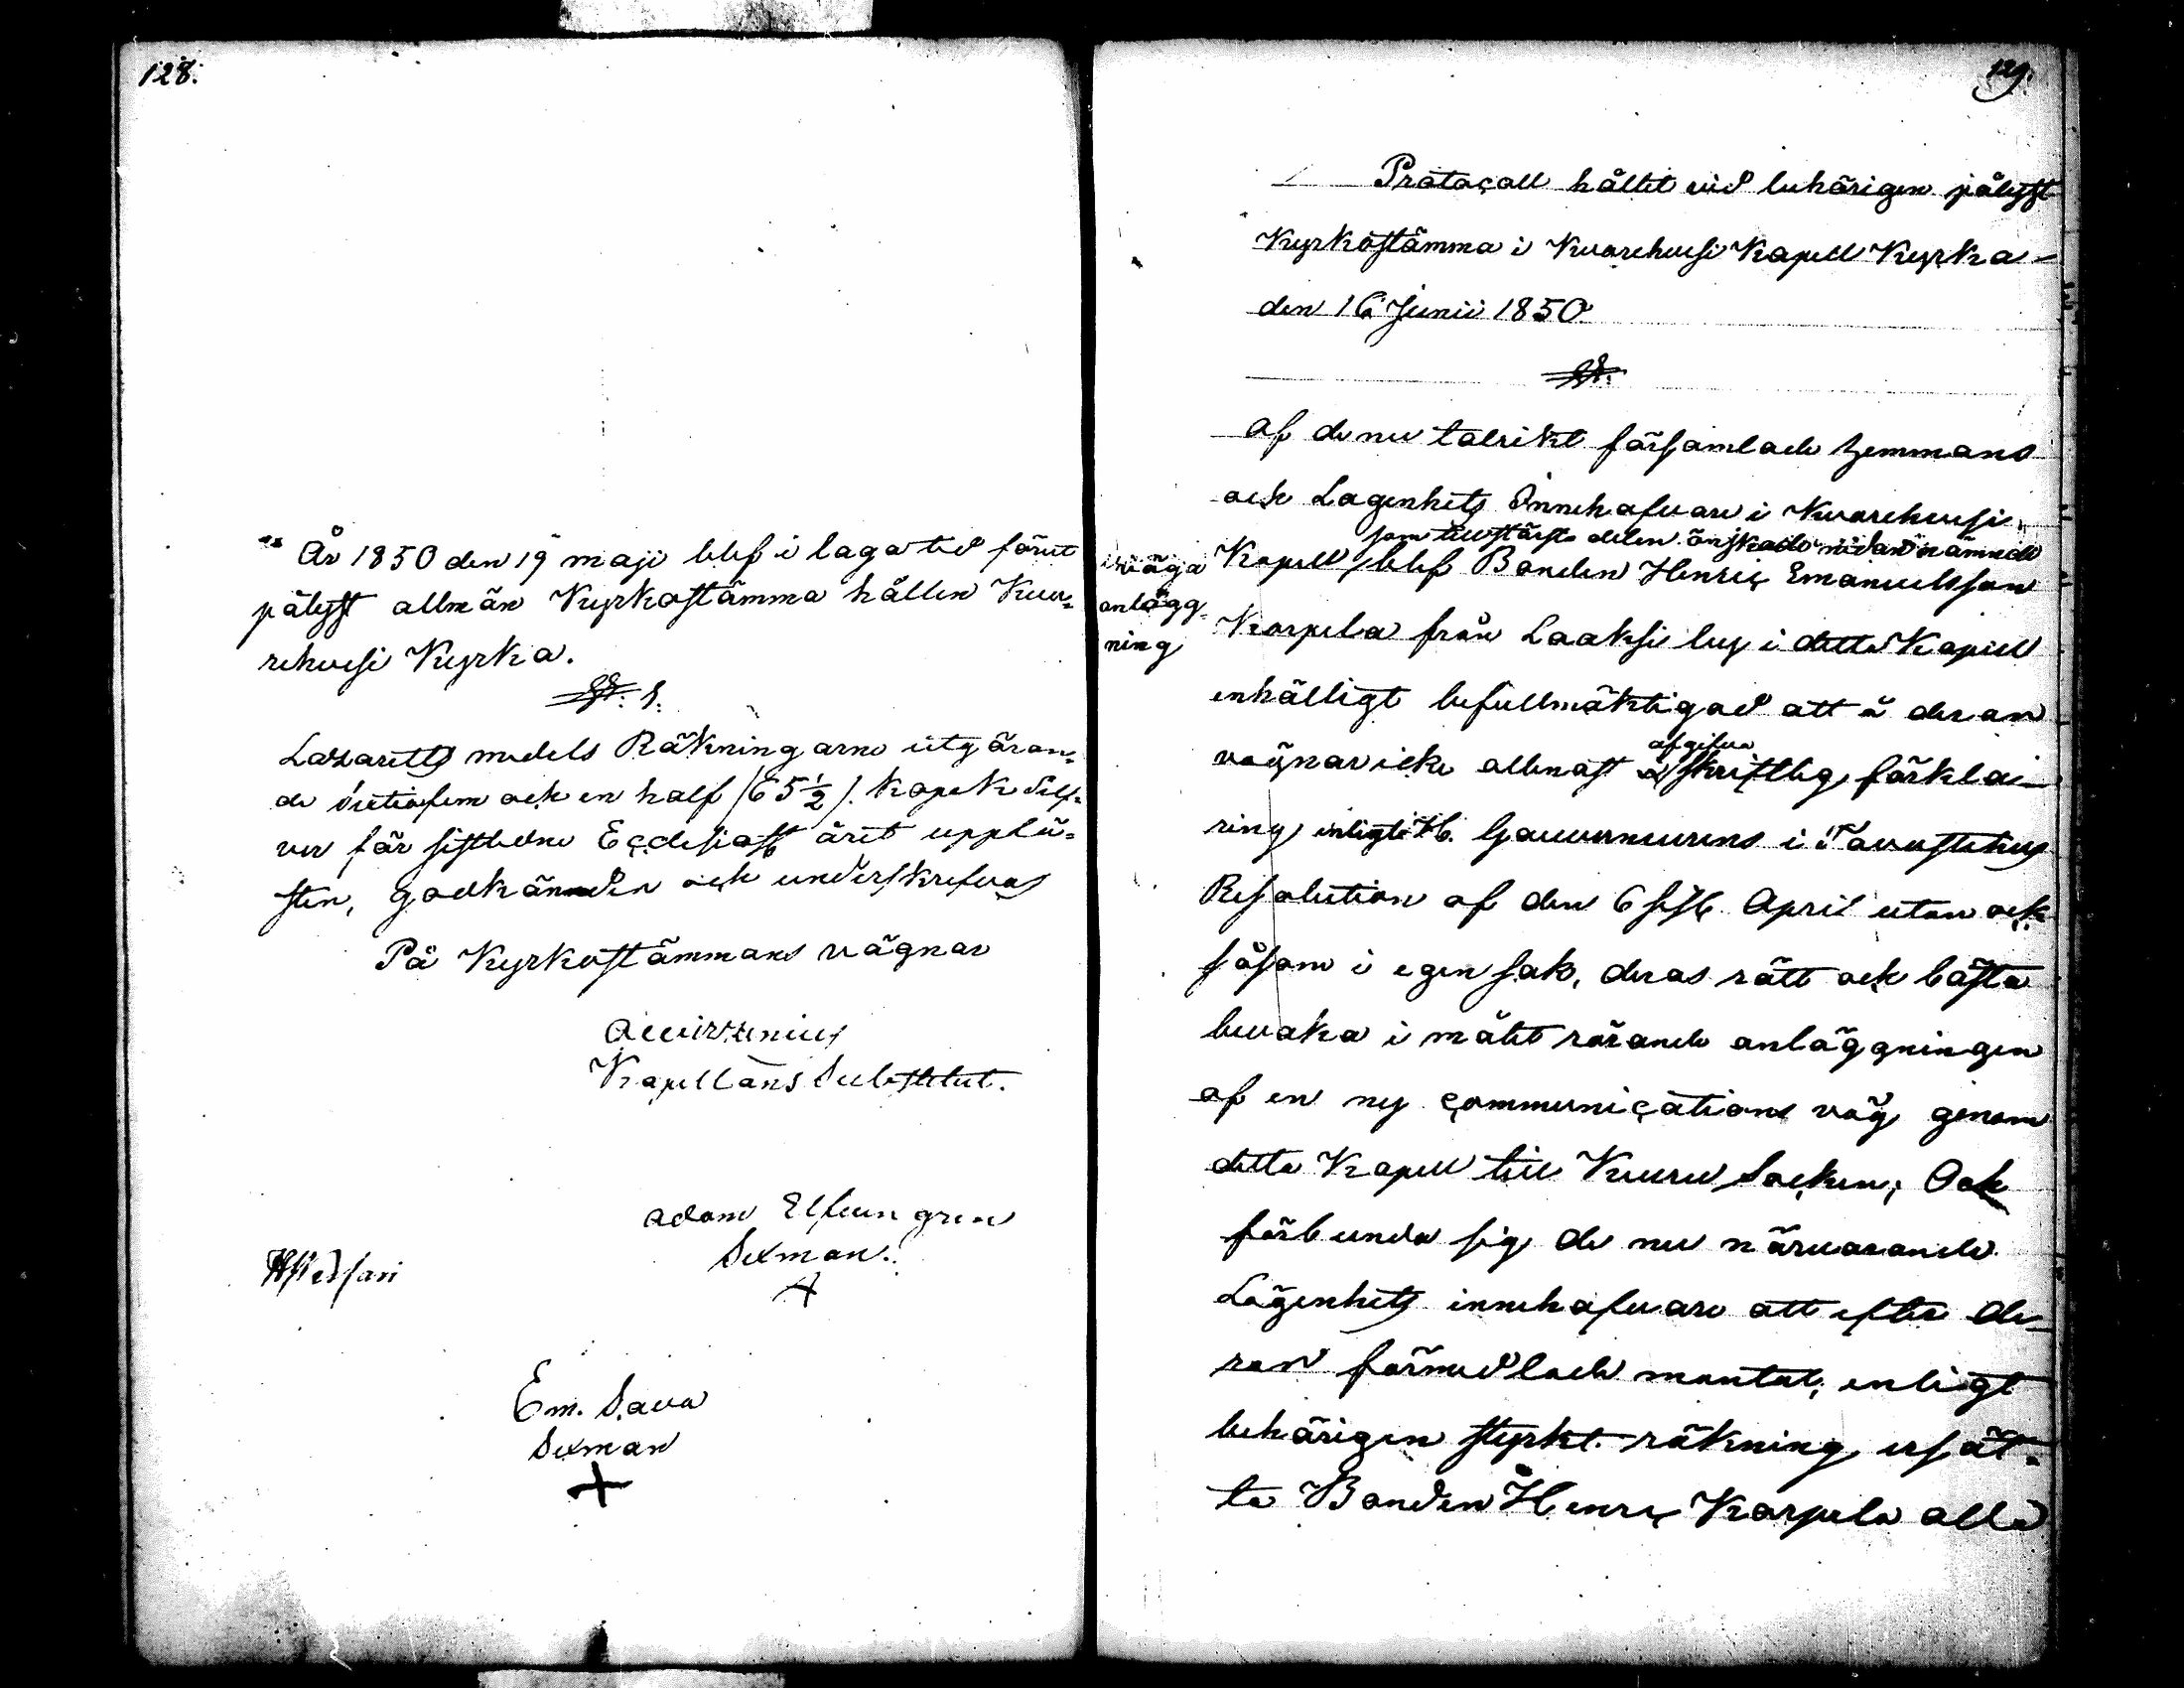 128.
År 1850 den 19 maji blef i laga tid förut
pålyst allmän Kyrkostämma hållen Kuo-
rehvesi Kyrka.
§. 1.
Lazaretts medels Räkningarne utgöran-
de sextiofem och en half /65 1/2/. kopek Silf-
ver för sistledne Ecclesiast året upplä-
sten, godkänden och underskrefvos
På Kyrkostämmans vägnar
Kapellans Substitut.
Adam Elfvengren
Sexman.
+
Em. Sava
Sexman
+
129.
Protocoll hållit vid behörigen pålyst
Kyrkostämma i Kuorehvesi Kapell Kyrka
den 16 Junii 1850
§.
Af de nu talrikt församlade hemmans
och Lägenhets Innehafvare i Kuorehvesi
som till största delen önskade nedannämnde
väga
anlägg-
ning
Kapell, blef Bonden Henric Emanuelsson
Korpela från Laaksi by i detta Kapell
enhälligt befullmäktigad att å deran
afgifva
vägnar icke allenast skriftlig förkla-
ring enligt H. Gouverneurens i Tavastehus
Resolution af den 6 sistl. April utan ock
såsom i egen sak, deras rätt och bästa
bevaka i målet rörande anläggningen
af en ny communications väg genom
detta Kapell till Kuru Socken; Och
förbundo sig de nu närvarande
Lägenhets innehafvare att efter de-
ran förmedlade mantal, enligt
behörigen styrkt räkning ersät-
ta Bonden Henric Korpela alla